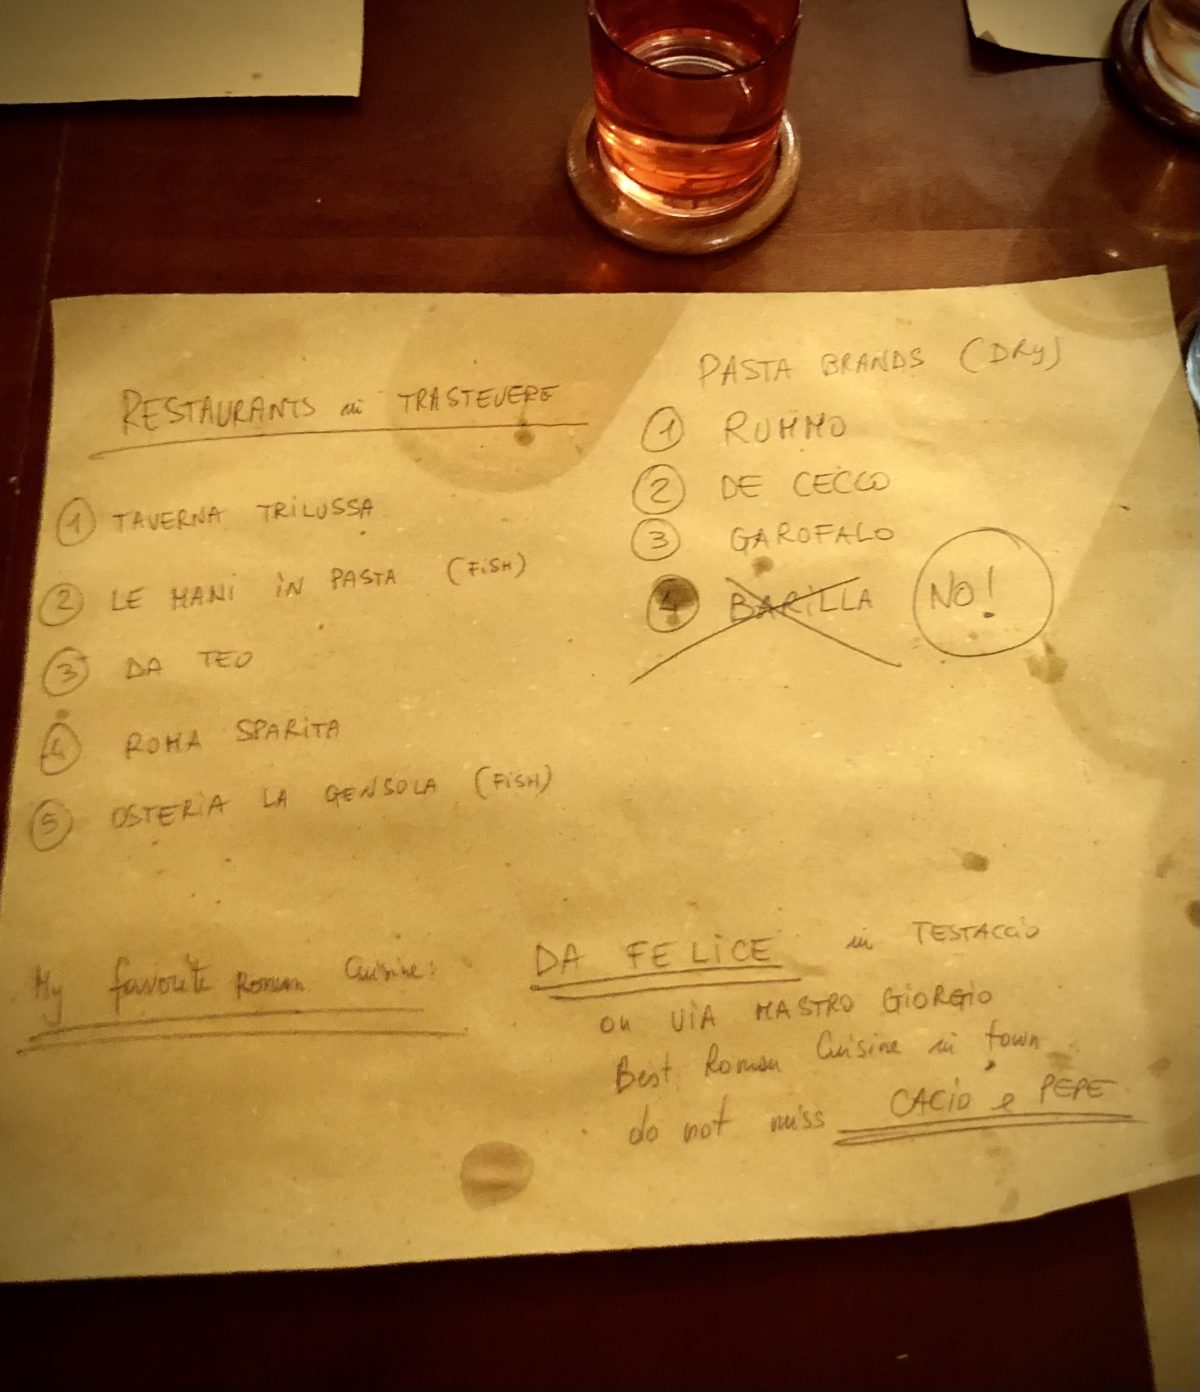 RESTAURANTS in TRASTEVERE
① TAVERNA TRILUSSA
② LE MANI IN PASTA (FISH)
③ DA TEO
④ ROMA SPARITA
⑤ OSTERIA LA GENSOLA (FISH)
PASTA BRANDS (DRY)
① RUMMO
② DE CECCO
③ GAROFALO
④ BARILLA NO!
My favorite Roman Cuisine:
DA FELICE in TESTACCIO
on VIA MASTRO GIORGIO
Best Roman Cuisine in town
do not miss CACIO e PEPE